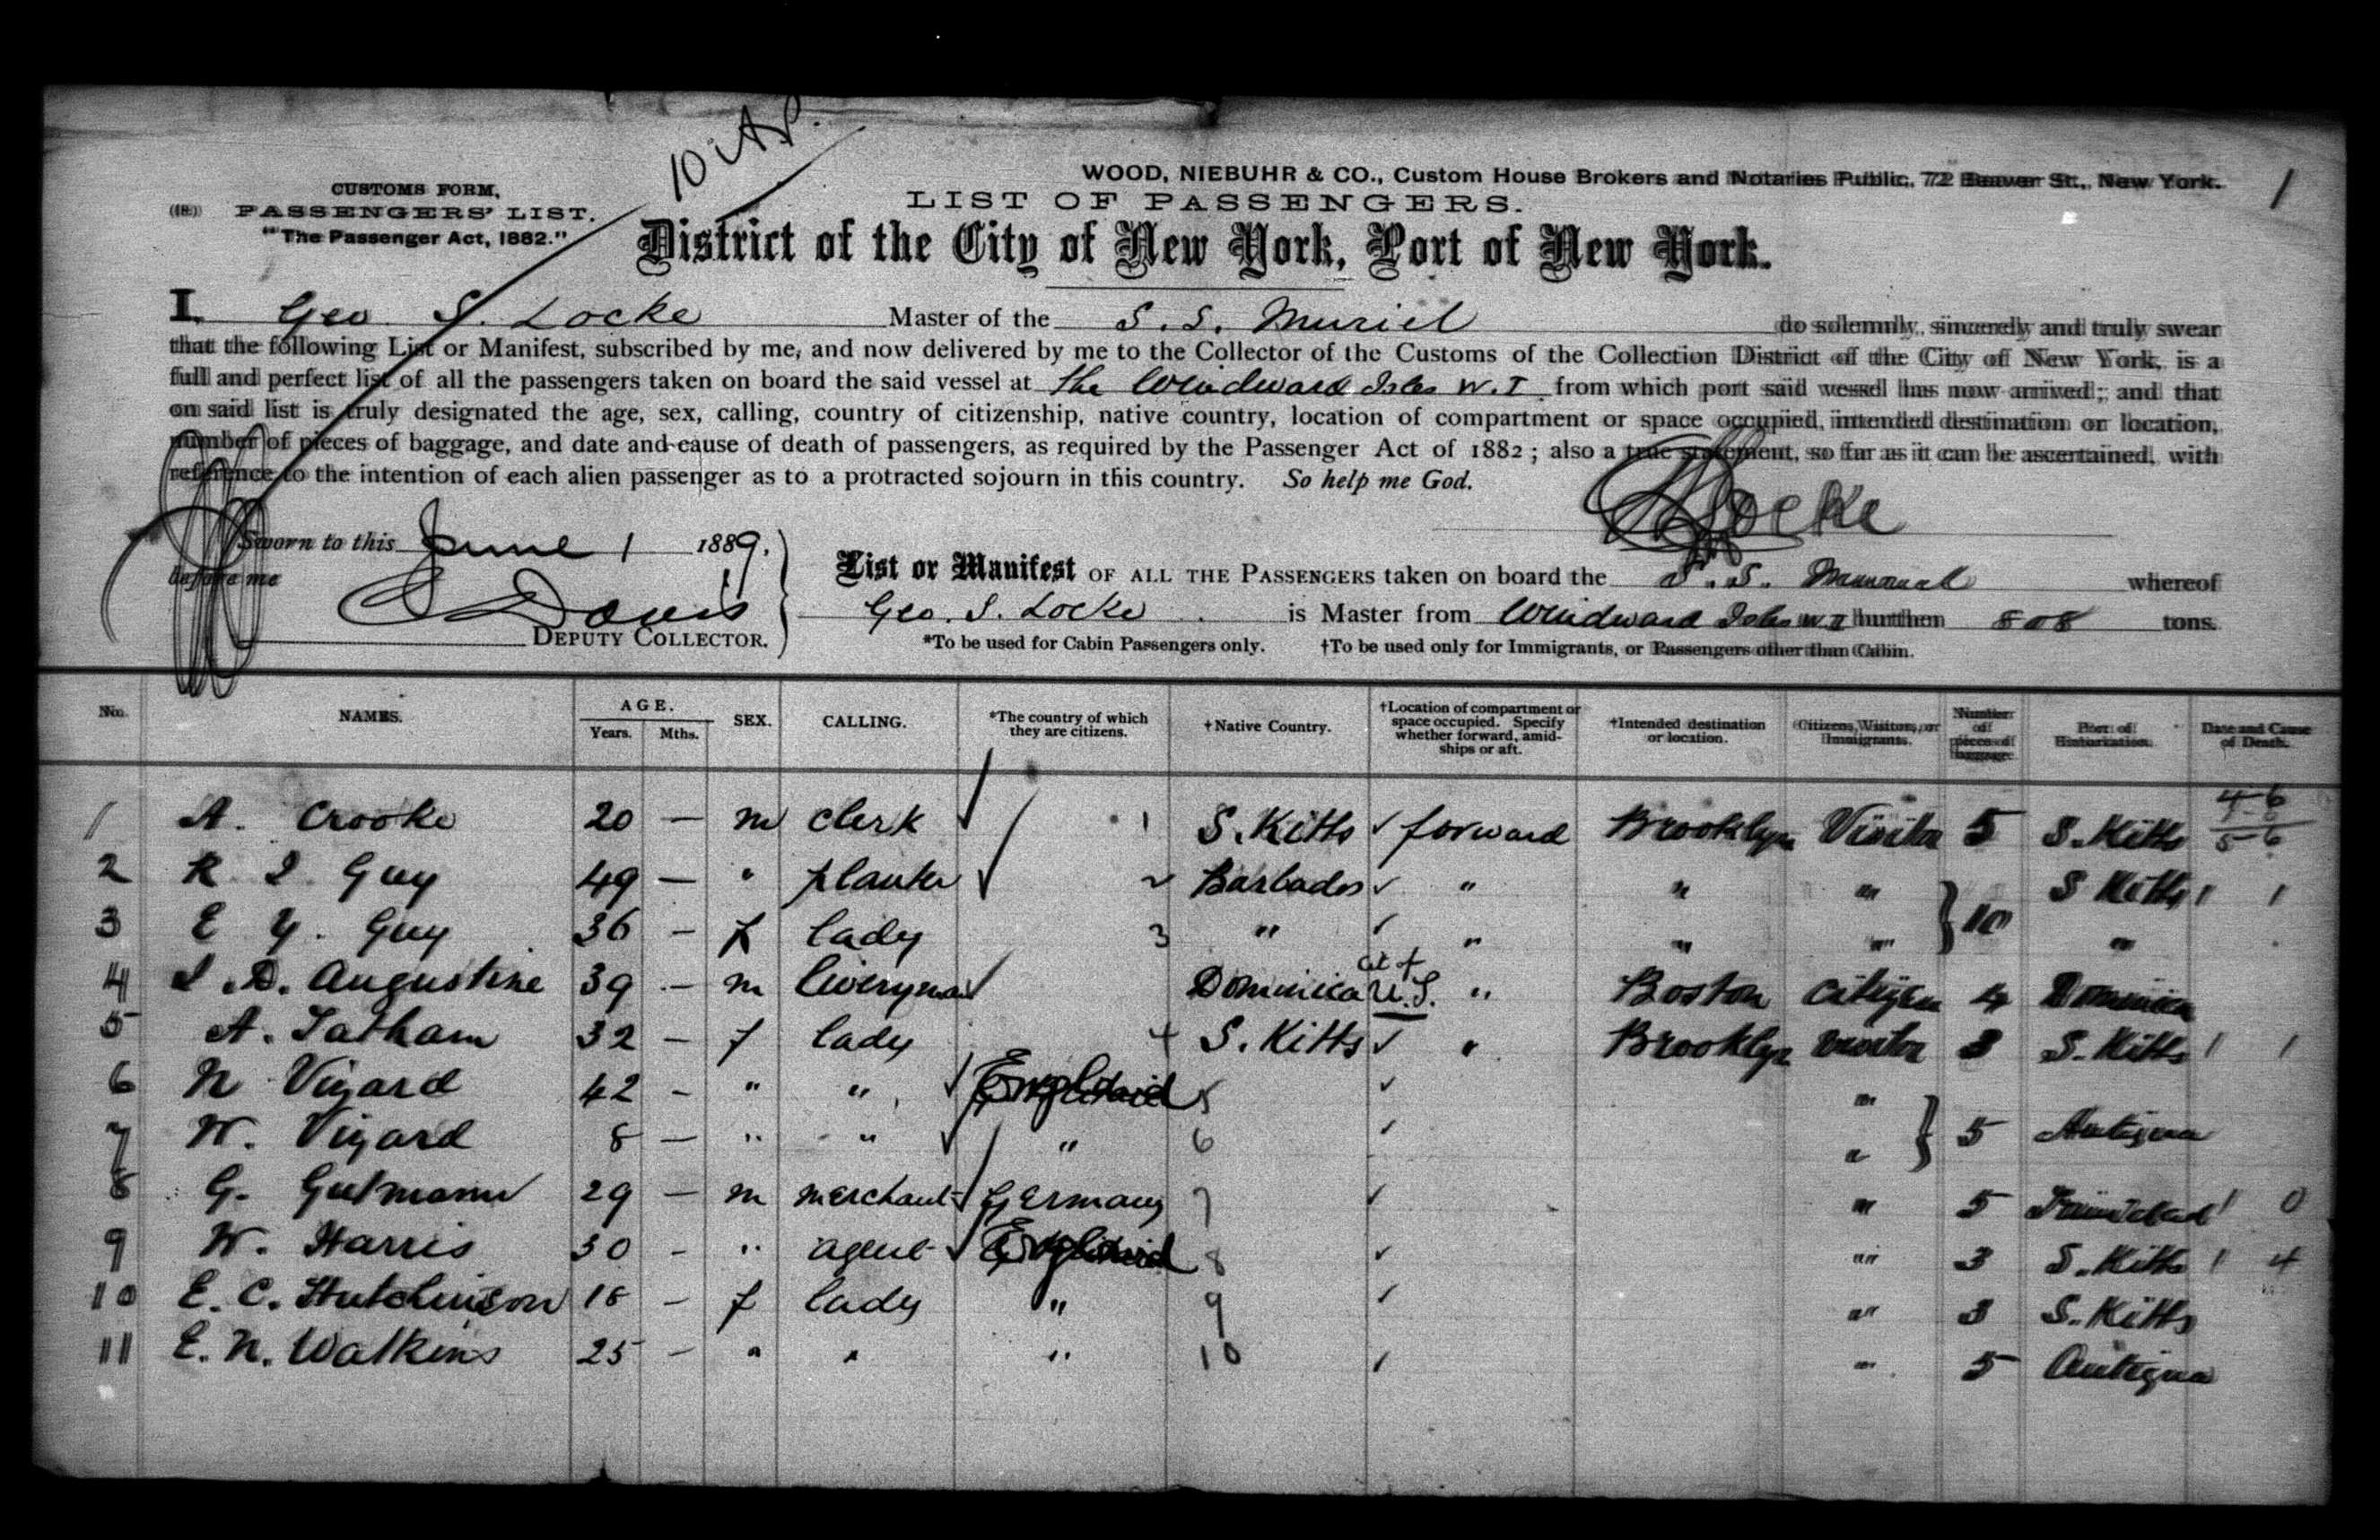 10 A.P.
WOOD, NIEBUHR & CO., Custom House Brokers and Notaries Public, 72 Beaver St., New York.
1
CUSTOMS FORM,
PASSENGERS' LIST.
"The Passenger Act, 1882."
LIST OF PASSENGERS.
District of the City of New York, Port of New York.
I, Geo S. Locke Master of the S.S. Muriel do solemnly, sincerely and truly swear
that the following List or Manifest, subscribed by me, and now delivered by me to the Collector of the Customs of the Collection District of the City of New York, is a
full and perfect list of all the passengers taken on board the said vessel at the Windward Isles W.I from which port said vessel has now arrived; and that
on said list is truly designated the age, sex, calling, country of citizenship, native country, location of compartment or space occupied, intended destination or location,
number of pieces of baggage, and date and cause of death of passengers, as required by the Passenger Act of 1882; also a true statement, so far as it can be ascertained, with
reference to the intention of each alien passenger as to a protracted sojourn in this country. So help me God.
Locke
Sworn to this June 1 1889.
before me
Davis
DEPUTY COLLECTOR.
List or Manifest OF ALL THE PASSENGERS taken on board the S.S. Muriel whereof
Geo. S. Locke is Master from Windward Isles W.I burthen 808 tons.
*To be used for Cabin Passengers only. †To be used only for Immigrants, or Passengers other than Cabin.
No. NAMES. AGE. Years. Mths. SEX. CALLING. *The country of which they are citizens. †Native Country. †Location of compartment or space occupied. Specify whether forward, amidships or aft. †Intended destination or location. Citizens, Visitors, or Immigrants. Number of pieces of baggage. Port of Embarkation. Date and Cause of Death.
1 A. Crooke 20 — m clerk 1 S. Kitts forward Brooklyn Visitor 5 S. Kitts
2 R I Guy 49 — " planter 2 Barbados " " " S Kitts 1 1
3 E Y. Guy 36 — f lady 3 " " " " } 10 "
4 I. D. Augustine 39 — m liveryman Dominica cit of U.S. " Boston citizen 4 Dominica
5 A. Tatham 32 — f lady 4 S. Kitts " Brooklyn visitor 3 S. Kitts 1 1
6 N Vizard 42 - " " England 5 "
7 W. Vizard 8 — " " " 6 " } 5 Antigua
8 G. Gutmann 29 — m merchant Germany 7 " 5 Trinidad 1 0
9 W. Harris 30 - " agent England 8 " 3 S. Kitts 1 4
10 E. C. Hutchinson 18 - f lady " 9 " 3 S. Kitts
11 E. N. Watkins 25 — " " " 10 " 5 Antigua